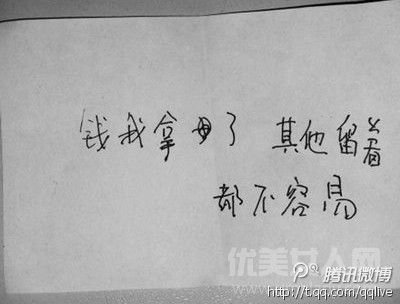 钱我拿毋了 其他留着
都不容易
优美女人网
腾讯微博
http://t.qq.com/qqlive